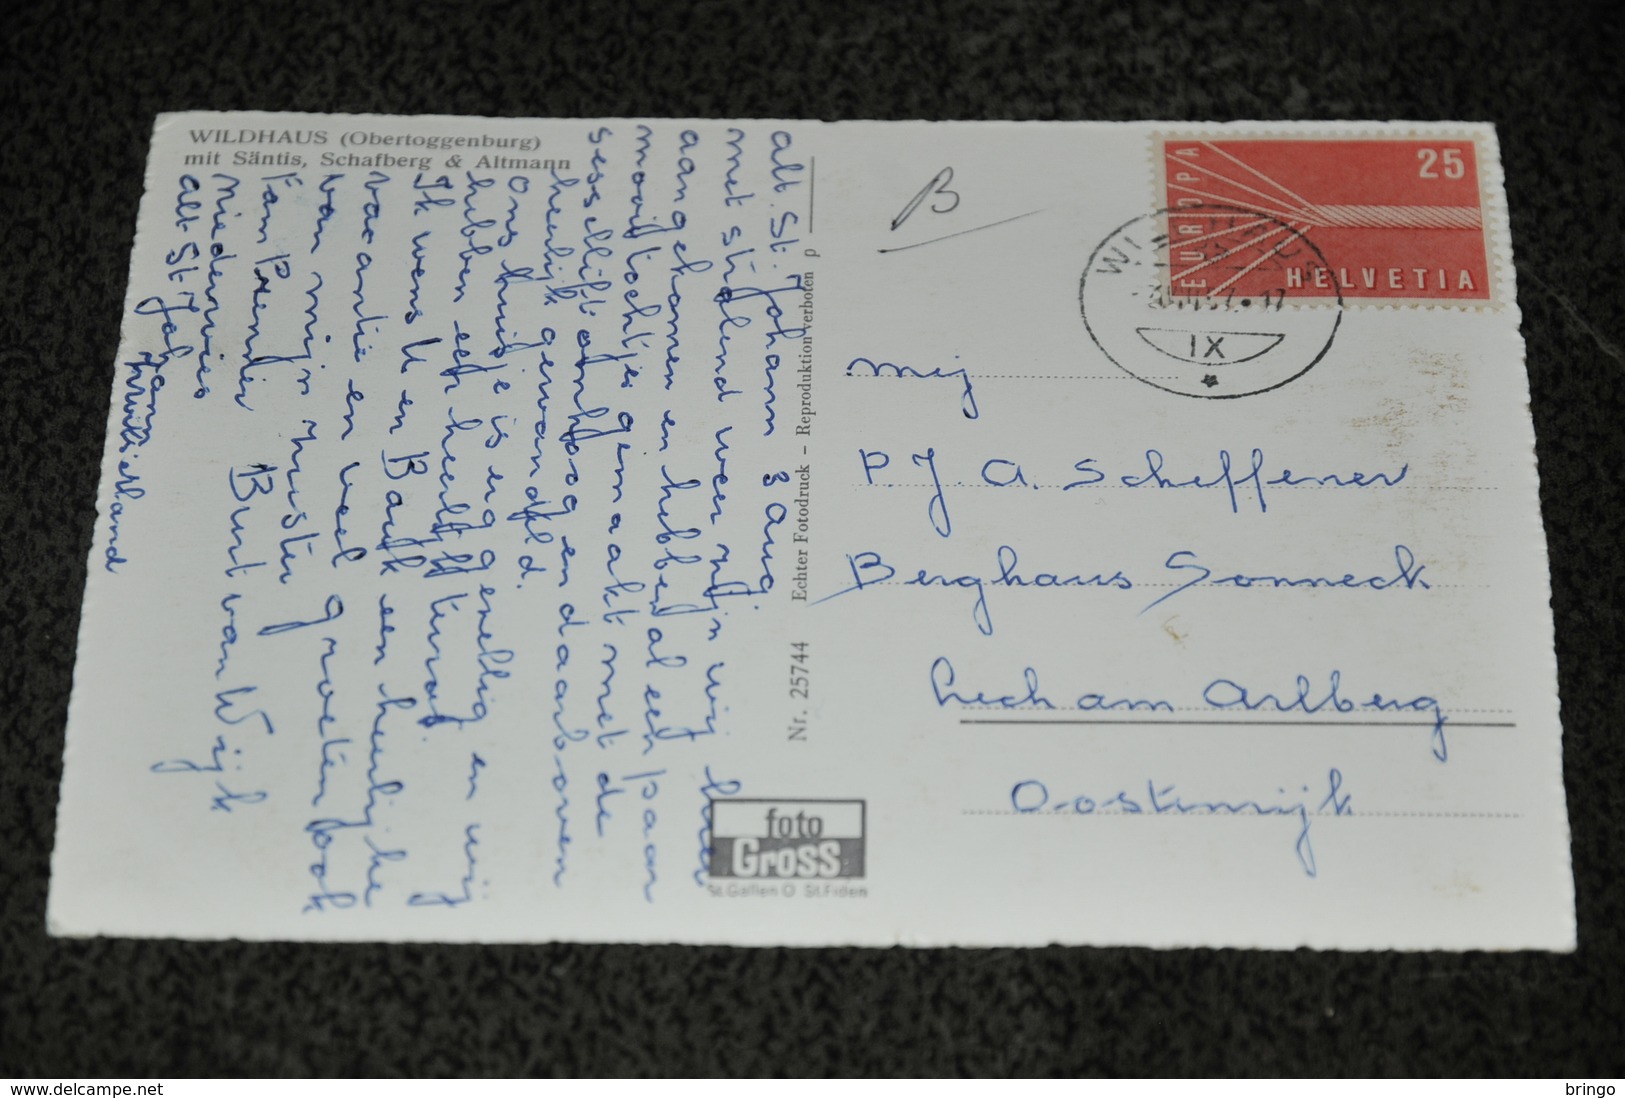 WILDHAUS (Obertoggenburg)
mit Säntis, Schafberg & Altmann
alt. St. Johann 3 Aug.
Met stralend weer zijn wij hier
aangekomen en hebben al een paar
mooie tochtjes gemaakt met de
sessellift omhoog en daarboven
heerlijk gewandeld.
Ons huisje is erg gezellig en wij
hebben een heerlijk terras.
Ik wens U en Bauk een heerlijke
vacantie en veel groeten ook
van mijn zuster
Fam Burt van Wijk
Niederwies
alt St Johann
Zwitserland
Nr. 25744 Echter Fotodruck – Reproduktion verboten p
foto
Gross
St.Gallen O St.Fiden
B
EUROPA
25
HELVETIA
WILDHAUS
IX
Mej
P. J. A. Scheffener
Berghaus Sonneck
Lech am Arlberg
Oostenrijk
delcampe.net
bringo